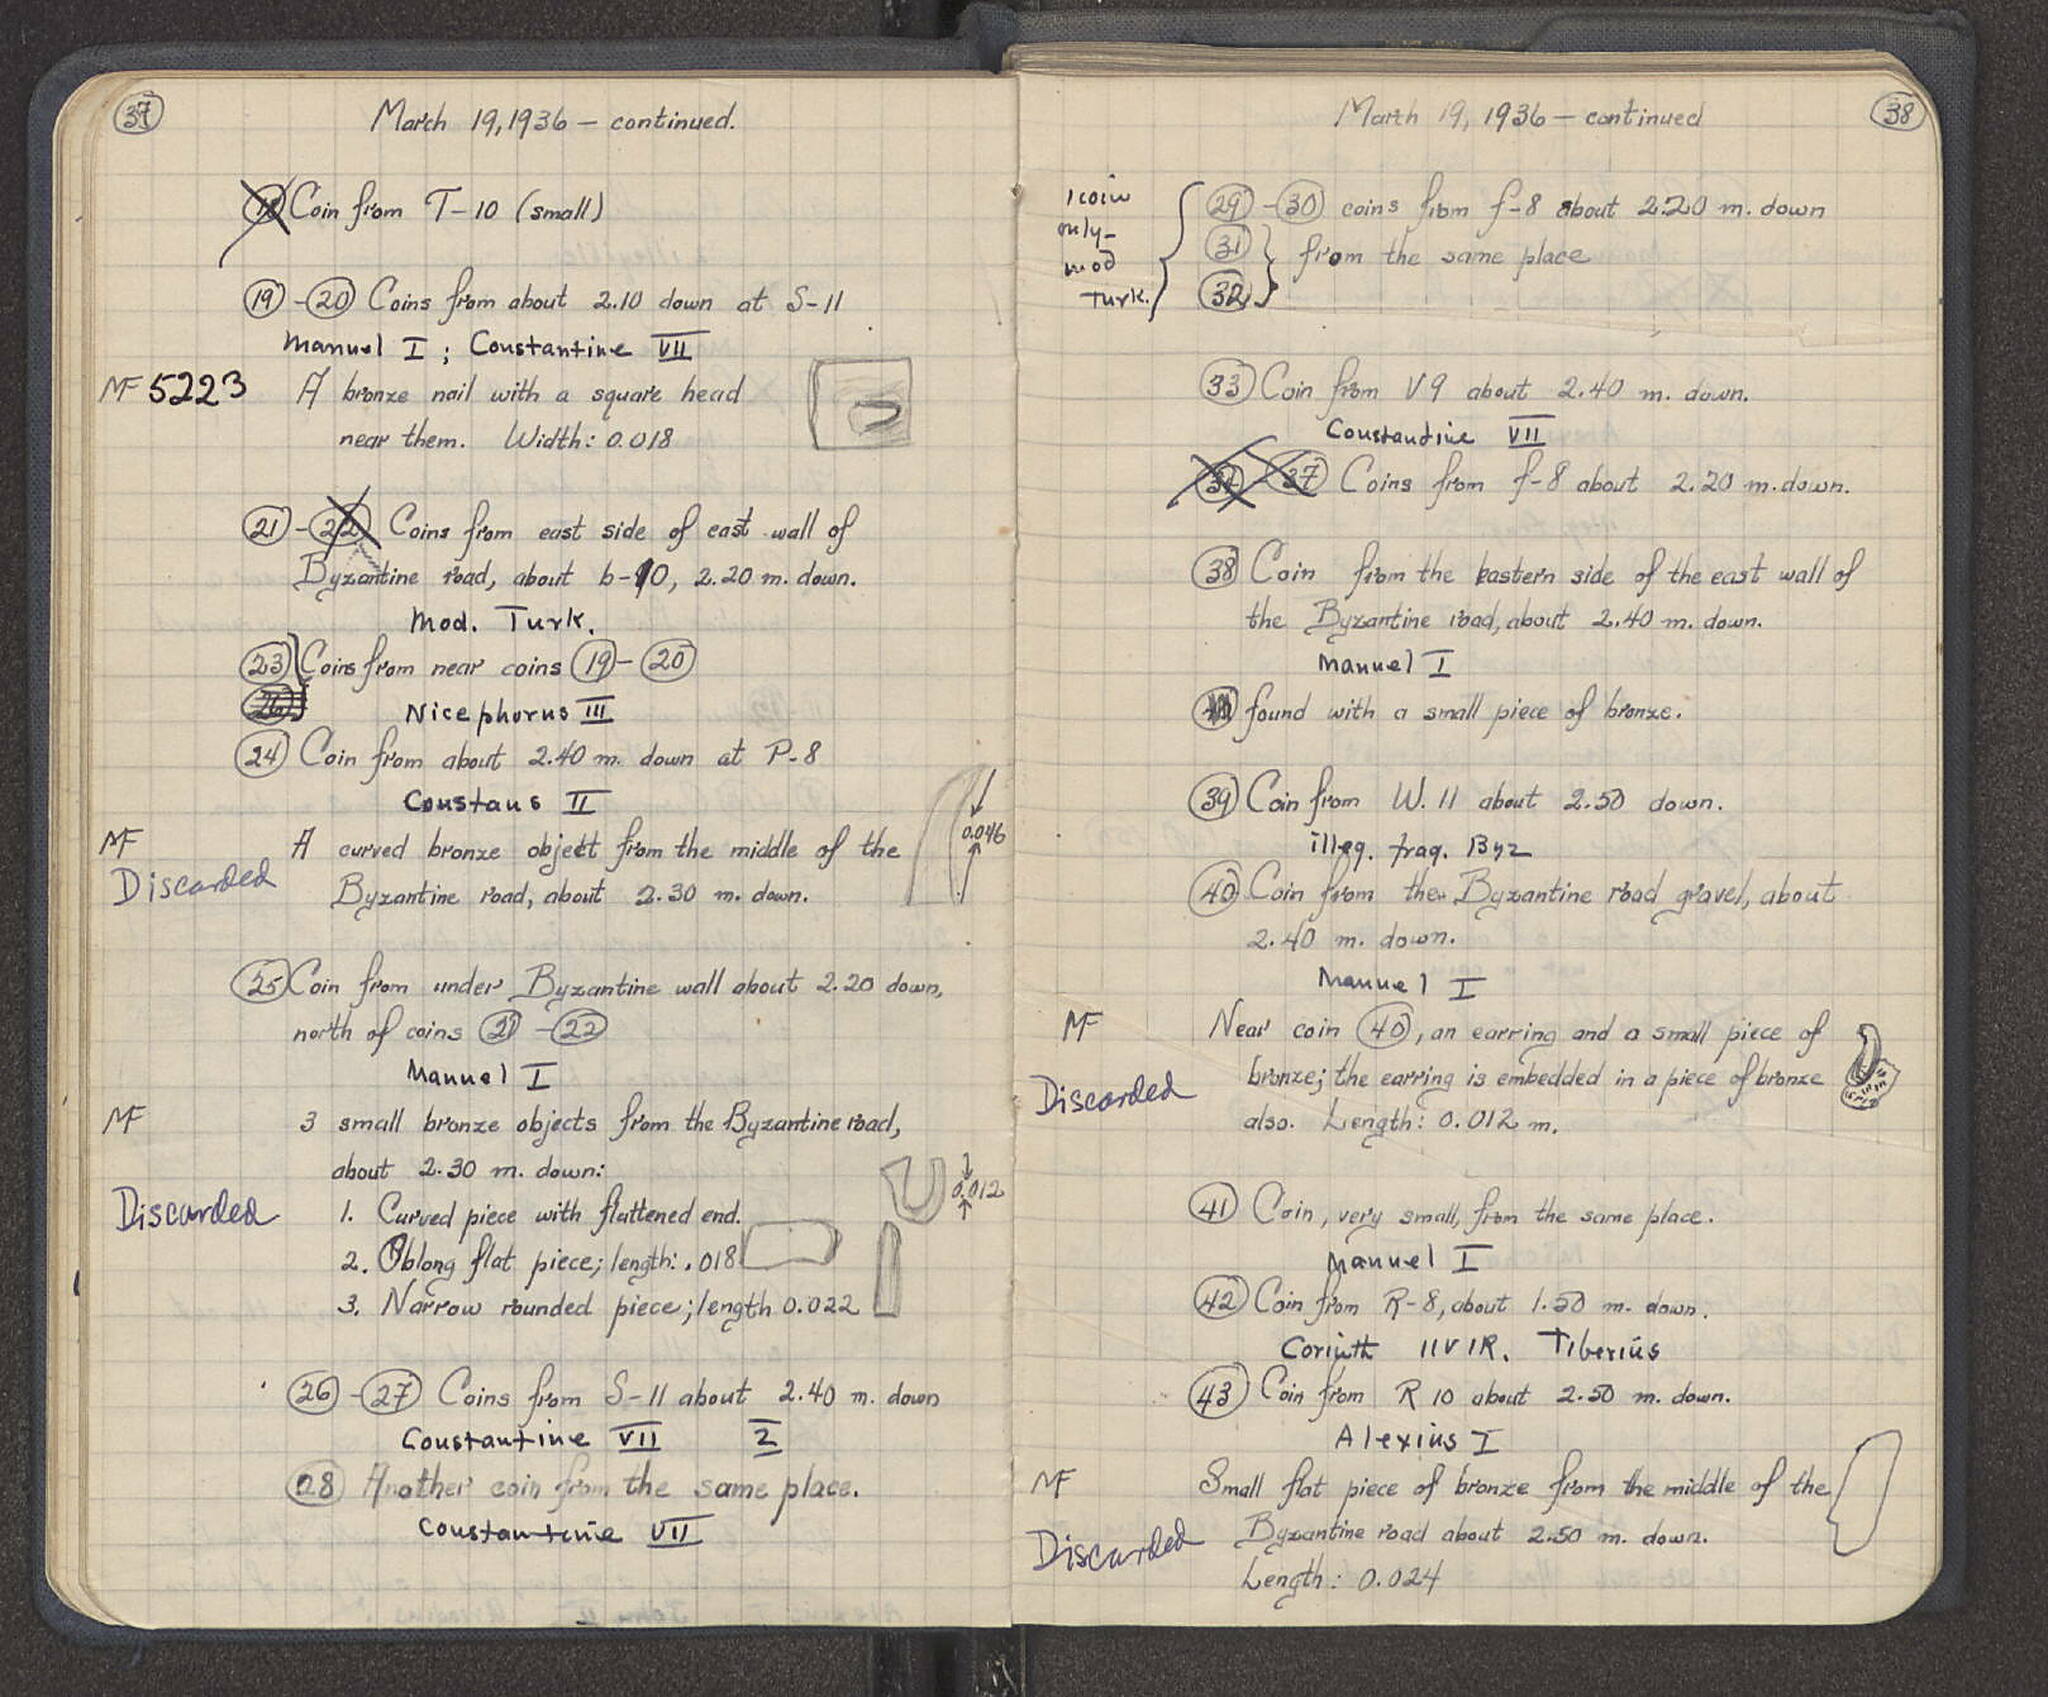 37
March 19, 1936 — continued.
18 Coin from T-10 (small)
19 - 20 Coins from about 2.10 down at S-11
Manuel I ; Constantine VII
MF 5223 A bronze nail with a square head
near them. Width: 0.018
21 - 22 Coins from east side of east wall of
Byzantine road, about b-10, 2.20 m. down.
Mod. Turk.
23 Coins from near coins 19 - 20
Nicephorus III
24 Coin from about 2.40 m. down at P-8
Constans II
MF A curved bronze object from the middle of the
0.046
Discarded Byzantine road, about 2.30 m. down.
25 Coin from under Byzantine wall about 2.20 down,
north of coins 21 - 22
Manuel I
MF 3 small bronze objects from the Byzantine road,
about 2.30 m. down:
0.012
Discarded 1. Curved piece with flattened end.
2. Oblong flat piece; length: .018
3. Narrow rounded piece; length 0.022
26 - 27 Coins from S-11 about 2.40 m. down
Constantine VII
28 Another coin from the same place.
Constantine VII
38
March 19, 1936 — continued
1 coin
only-
mod
Turk.
29 - 30 coins from f-8 about 2.20 m. down
31 from the same place
32
33 Coin from V9 about 2.40 m. down.
Constantine VII
34 - 37 Coins from f-8 about 2.20 m. down.
38 Coin from the eastern side of the east wall of
the Byzantine road, about 2.40 m. down.
Manuel I
found with a small piece of bronze.
39 Coin from W. 11 about 2.50 down.
illeg. frag. Byz
40 Coin from the Byzantine road gravel, about
2.40 m. down.
Manuel I
MF Near coin 40, an earring and a small piece of
Discarded bronze; the earring is embedded in a piece of bronze
also. Length: 0.012 m.
41 Coin, very small, from the same place.
Manuel I
42 Coin from R-8, about 1.50 m. down.
Corinth IIVIR. Tiberius
43 Coin from R 10 about 2.50 m. down.
Alexius I
MF Small flat piece of bronze from the middle of the
Discarded Byzantine road about 2.50 m. down.
Length: 0.024